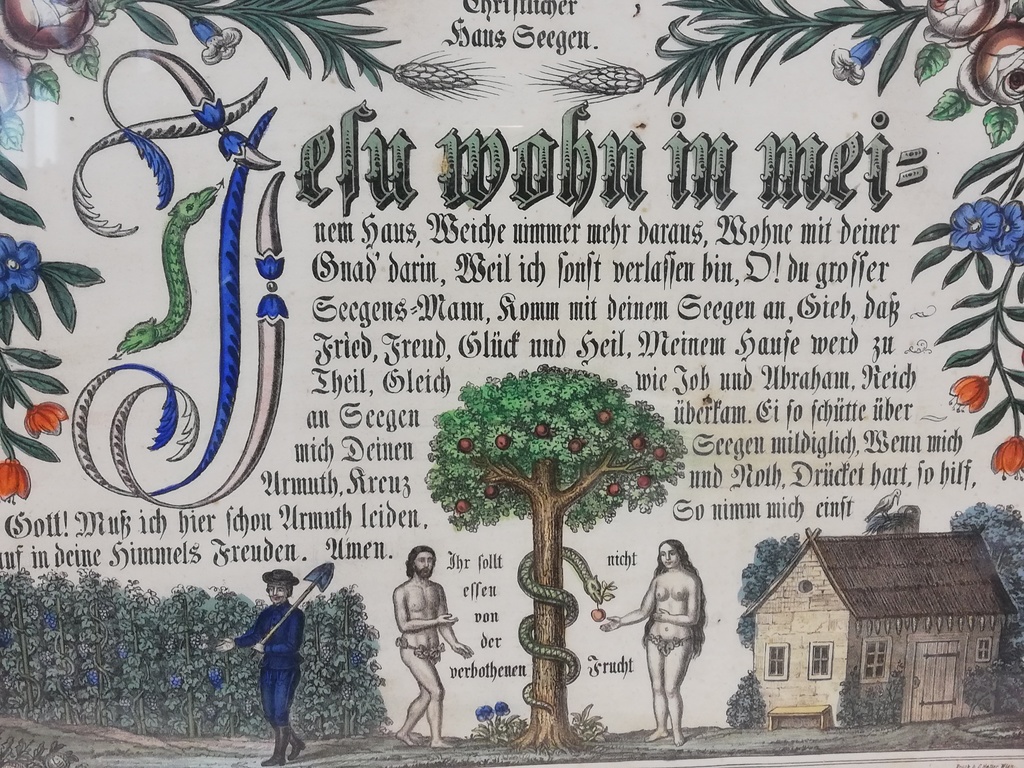 Christlicher
Haus Seegen.
Jesu wohn in mei=
nem Haus, Weiche nimmer mehr daraus, Wohne mit deiner
Gnad' darin, Weil ich sonst verlassen bin, O! du grosser
Seegens=Mann, Komm mit deinem Seegen an, Gieb, daß
Fried, Freud, Glück und Heil, Meinem Hause werd zu
Theil, Gleich wie Job und Abraham, Reich
an Seegen überkam. Ei so schütte über
mich Deinen Seegen mildiglich, Wenn mich
Armuth, Kreuz und Noth, Drücket hart, so hilf,
Gott! Muß ich hier schon Armuth leiden, So nimm mich einst
auf in deine Himmels Freuden. Amen.
Ihr sollt nicht
essen
von
der
verbothenen Frucht